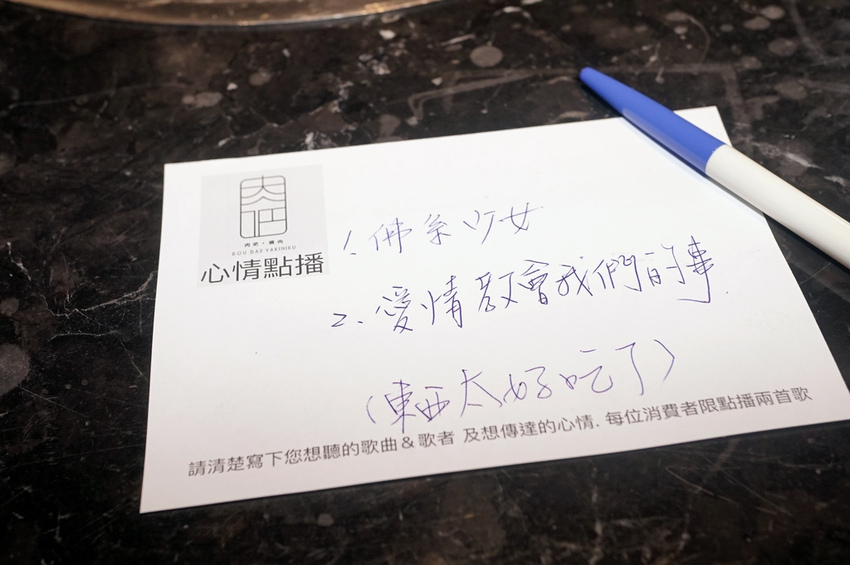 肉吧
肉吧·燒肉
ROU BAR YAKINIKU
心情點播
1. 佛系少女
2. 愛情教會我們的事
(東西太好吃了)
請清楚寫下您想聽的歌曲&歌者 及想傳達的心情. 每位消費者限點播兩首歌